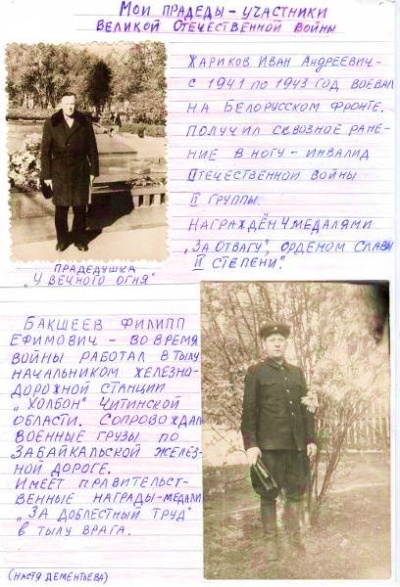 Мои прадеды - участники
Великой Отечественной войны
Жариков Иван Андреевич -
с 1941 по 1943 год воевал
на Белорусском фронте.
Получил сквозное ране-
ние в ногу - инвалид
Отечественной войны
II группы.
Награждён 4 медалями
„За отвагу", орденом Славы
II степени".
Прадедушка
„У вечного огня"
Бакшеев Филипп
Ефимович - во время
войны работал в тылу
начальником железно-
дорожной станции
„Холбон" Читинской
области. Сопровождал
военные грузы по
Забайкальской желез-
ной дороге.
Имеет правительст-
венные награды - медали
„За доблестный труд"
в тылу врага.
(Настя Дементьева)